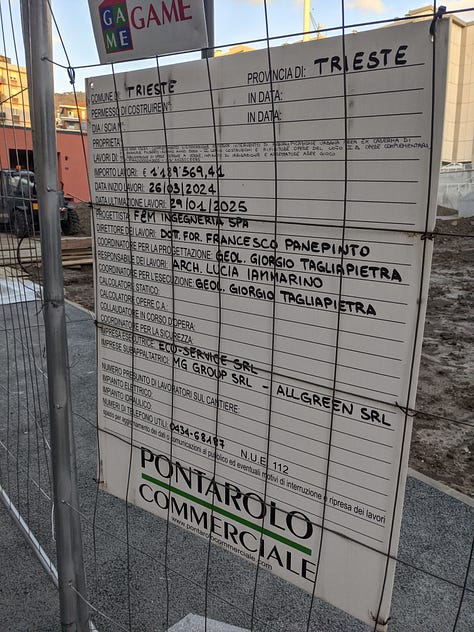 GA
ME
GAME
COMUNE DI: TRIESTE PROVINCIA DI: TRIESTE
PERMESSO DI COSTRUIRE N°: IN DATA:
DIA / SCIA N° IN DATA:
PROPRIETÀ
LAVORI DI
IMPORTO LAVORI: € 1'189'569,41
DATA INIZIO LAVORI: 26/03/2024
DATA ULTIMAZIONE LAVORI: 29/01/2025
PROGETTISTA: F&M INGEGNERIA SPA
DIRETTORE DEI LAVORI: DOTT. FOR. FRANCESCO PANEPINTO
COORDINATORE PER LA PROGETTAZIONE: GEOL. GIORGIO TAGLIAPIETRA
RESPONSABILE DEI LAVORI: ARCH. LUCIA IAMMARINO
COORDINATORE PER L'ESECUZIONE: GEOL. GIORGIO TAGLIAPIETRA
CALCOLATORE STATICO:
CALCOLATORE OPERE C.A.
COLLAUDATORE IN CORSO D'OPERA:
COORDINATORE PER LA SICUREZZA:
IMPRESA ESECUTRICE: ECO-SERVICE SRL
IMPRESE SUBAPPALTATRICI: MG GROUP SRL - ALLGREEN SRL
NUMERO PRESUNTO DI LAVORATORI SUL CANTIERE:
IMPIANTO ELETTRICO:
IMPIANTO IDRAULICO:
NUMERI DI TELEFONO UTILI: 0434-68187 N.U.E. 112
spazio per aggiornamento dei dati e comunicazioni al pubblico ed eventuali motivi di interruzione o ripresa dei lavori
PONTAROLO
COMMERCIALE
www.pontarolocommerciale.com